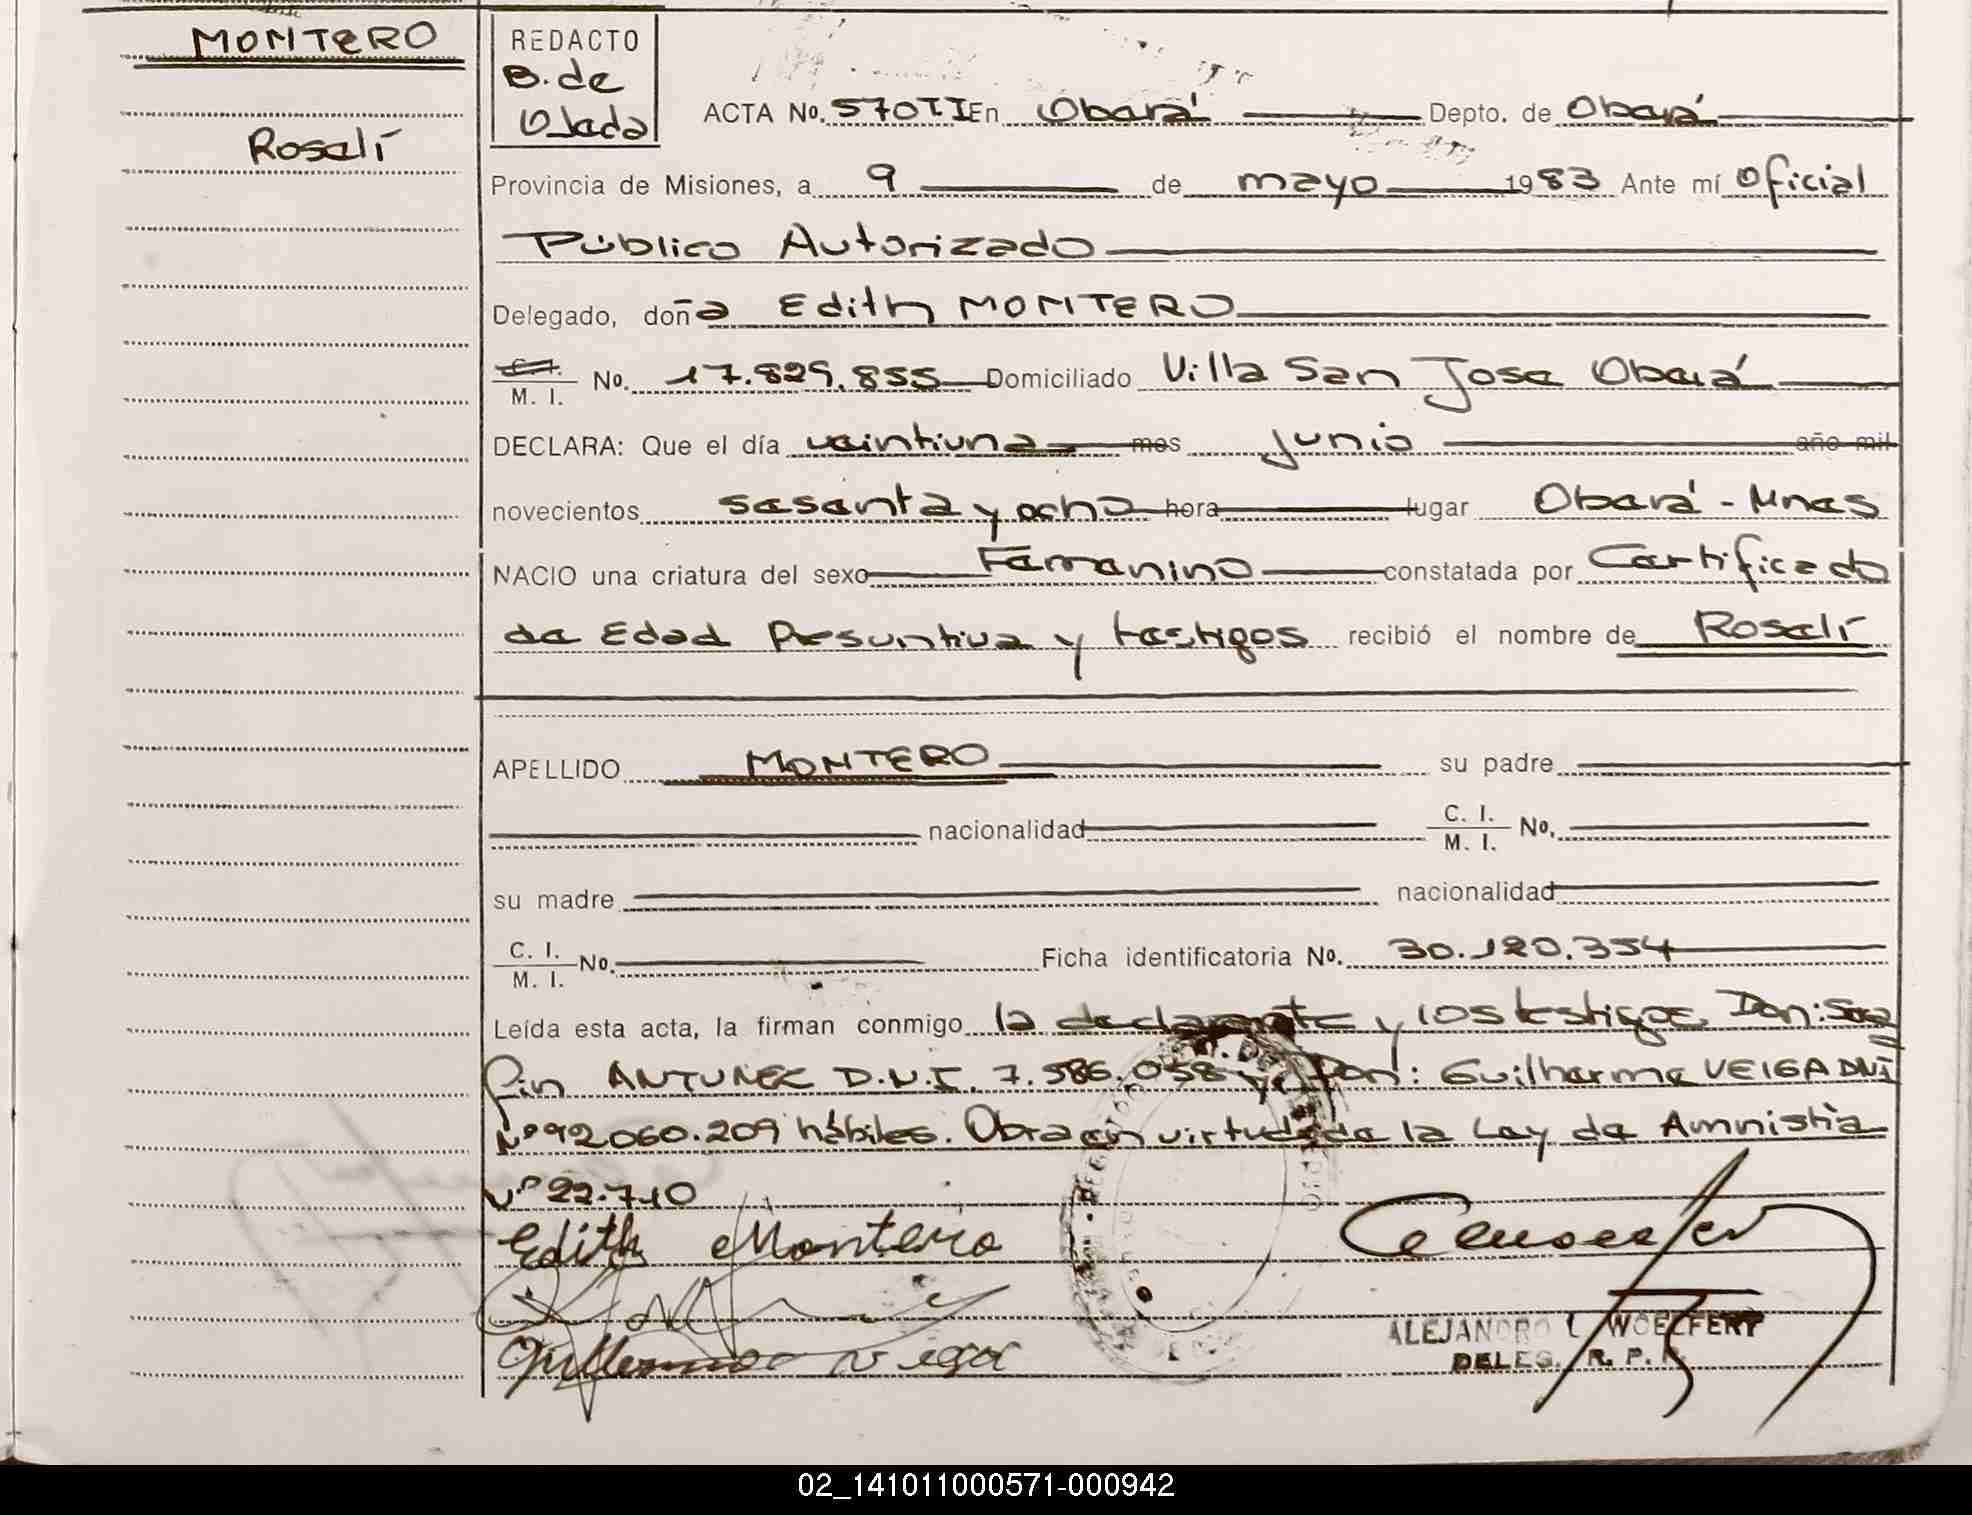 MONTERO
Rosalí
REDACTO
B. de
Ojeda
ACTA No. 570 II En Oberá Depto. de Oberá
Provincia de Misiones, a 9 de mayo 1983 Ante mí Oficial
Público Autorizado
Delegado, doña Edith MONTERO
C. I. / M. I. No. 17.829.855 Domiciliado Villa San Jose Oberá
DECLARA: Que el día veintiuno mes junio año mil
novecientos sesenta y ocho hora lugar Oberá - Mnes
NACIO una criatura del sexo Femenino constatada por Certificado
de Edad Presuntiva y testigos recibió el nombre de Rosalí
APELLIDO MONTERO su padre
nacionalidad C. I. / M. I. No.
su madre nacionalidad
C. I. / M. I. No. Ficha identificatoria No. 30.120.354
Leída esta acta, la firman conmigo la declarante y los testigos Don: Sera
fin ANTUNEZ D.N.I. 7.586.058 y Don: Guilherme VEIGA DNI
Nº 92.060.209 hábiles. Obra en virtud de la Ley de Amnistía
Nº 22.710
Edith Montero
Guillermo Veiga
ALEJANDRO L. WOELFERT
DELEG. R. P.
02_141011000571-000942